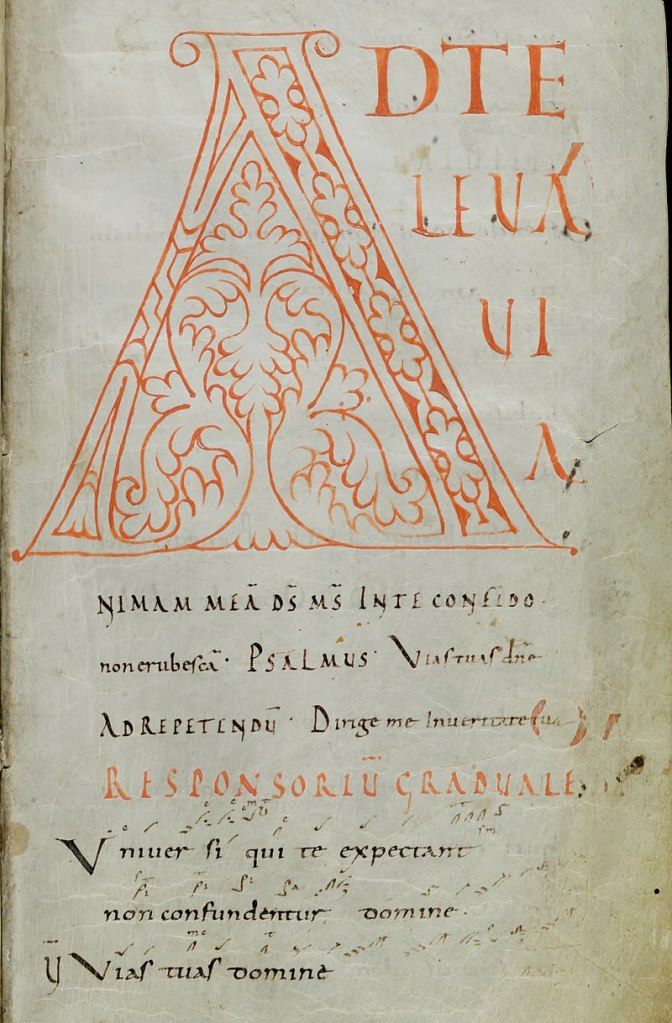 ADTE
LEUA
UI
A
NIMAM MEĀ DS̄ MS̄ INTE CONFIDO·
non erubescā· PSALMUS· Vias tuas dn̄e
AD REPETENDŪ· Dirige me Inueritate tua
RESPONSORIŪ GRADUALE·
Vniuersi qui te expectant
non confundentur domine·
Ȳ Vias tuas domine